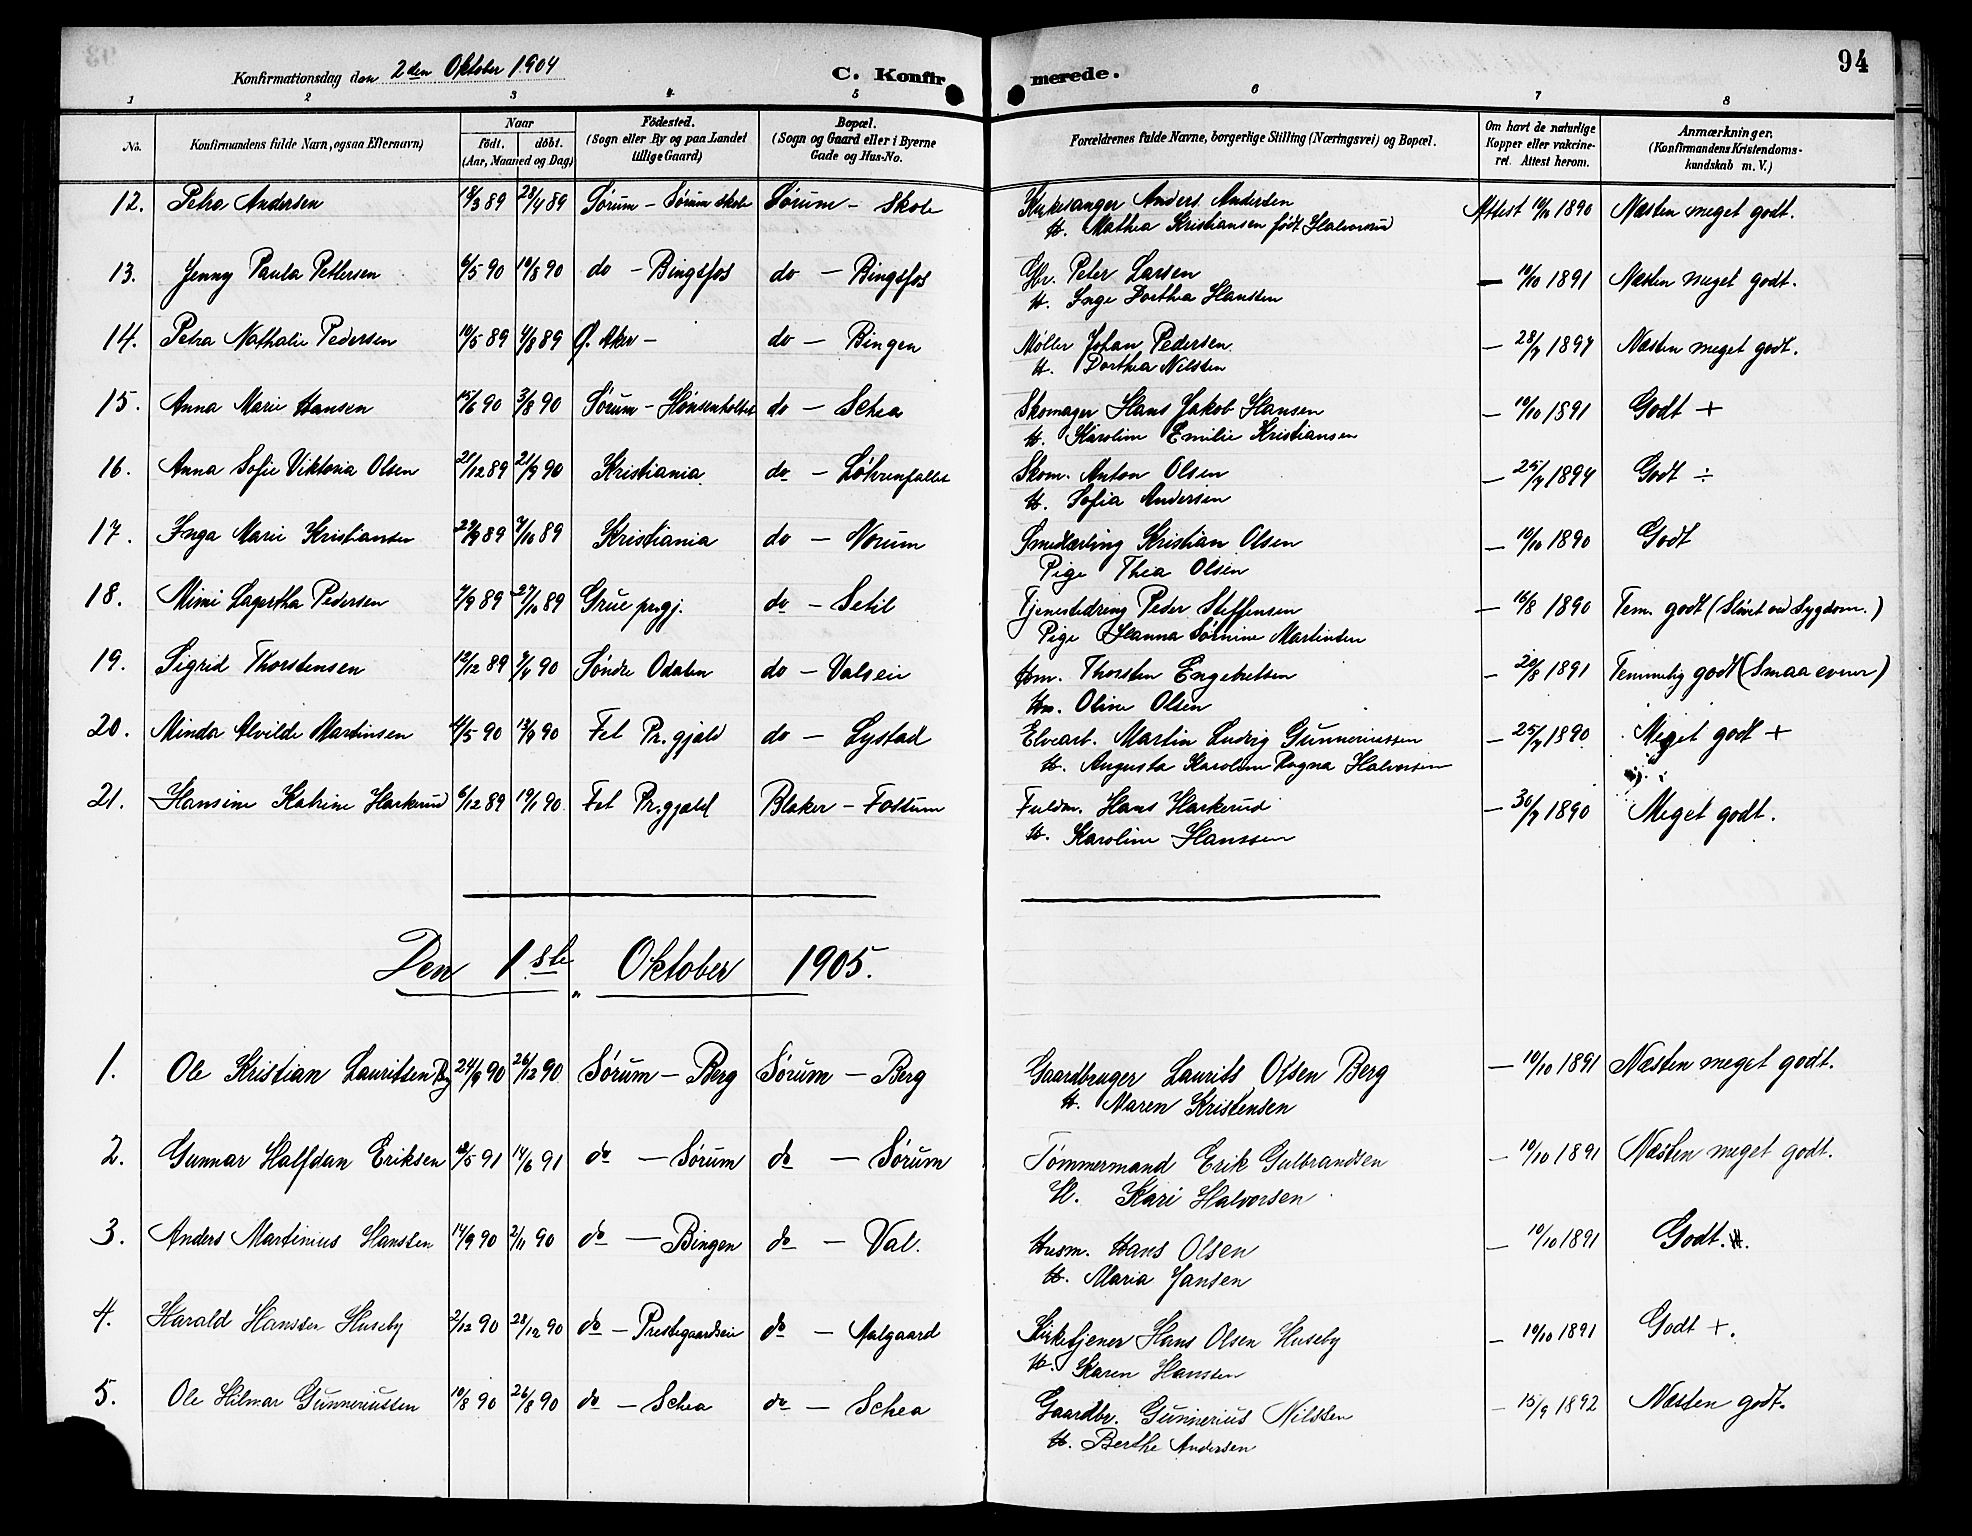 Konfirmationsdag den 2den Oktober 1904 C. Konfirmerede. 94
1 2 3 4 5 6 7 8
No. Konfirmandens fulde Navn, ogsaa Efternavn) Naar født. døbt. (Aar, Maaned og Dag) Fødested. (Sogn eller By og paa Landet tillige Gaard) Bopæl. (Sogn og Gaard eller i Byerne Gade og Hus-No. Forældrenes fulde Navne, borgerlige Stilling (Næringsvei) og Bopæl. Om havt de naturlige Kopper eller vakcineret. Attest herom. Anmærkninger. (Konfirmandens Kristendomskundskab m. V.)
12. Petra Andersen 18/3 89 28/4 89 Sørum - Sørum skole Sørum - Skole Kirkesanger Anders Andersen Attest 10/10 1890 Næsten meget godt.
H. Mathea Kristiansen født Halvorsrud
13. Jenny Paula Pettersen 6/5 90 10/8 90 do - Bingsfos do - Bingsfos Gbr. Peter Larsen - 10/10 1891 Næsten meget godt.
H. Inge Dorthea Hanssen
14. Petra Nathalie Pedersen 10/5 89 4/8 89 Ø. Aker - do - Bingen Møller Johan Pedersen - 28/7 1894 Næsten meget godt.
H. Dorthea Nilssen
15. Anna Marie Hansen 15/6 90 3/8 90 Sørum - Hønsenhollet do - Schea Skomager Hans Jakob Hansen - 10/10 1891 Godt +
H. Karoline Emilie Kristiansen
16. Anna Sofie Viktoria Olsen 21/12 89 21/9 90 Kristiania do - Løkrenfallet Skom. Anton Olsen - 25/7 1894 Godt ÷
H. Sofia Andersen
17. Inga Marie Kristiansen 29/9 89 7/10 89 Kristiania do - Norum Smedlærling Kristian Olsen - 10/10 1890 Godt
Pige Thea Olsen
18. Mimi Lagertha Pedersen 7/9 89 27/10 89 Grue prgj. do - Setil Tjenestedreng Peder Steffensen - 16/8 1890 Tem. godt (Sløvet ved Sygdom.)
Pige Hanna Sørnine Martinsen
19. Sigrid Thorstensen 12/12 89 7/4 90 Søndre Odalen do - Valseie Hm. Thorsten Engebretsen - 20/8 1891 Temmelig godt (Smaa evner)
Hm. Oline Olsen
20. Minda Alvilde Martinsen 4/5 90 13/9 90 Fet Pr.gjeld do - Lystad Elvearb. Martin Ludvig Gunneriussen - 25/7 1890 Meget godt +
H. Augusta Karoline Ragna Halvorsen
21. Hansine Katrine Harkerud 6/12 89 19/1 90. Fet Pr.gjæld Blaker - Fossum Fuldm. Hans Harkerud - 30/7 1890 Meget godt.
H. Karoline Hanssen
Den 1ste Oktober 1905.
1. Ole Kristian Lauritsen Bg 24/9 90 26/12 90 Sørum - Berg Sørum - Berg Gaardbruger Laurits Olsen Berg - 10/10 1891 Næsten meget godt.
H. Maren Kristensen
2. Gunnar Halfdan Eriksen 12/5 91 14/6 91 do - Sørum do - Sørum Tømmermand Erik Gulbrandsen - 10/10 1891 Næsten meget godt.
H. Kari Halvorsen
3. Anders Martinius Hanssen 14/9 90 2/11 90 do - Bingen do - Val. Husm. Hans Olsen - 10/10 1891 Godt.
H. Maria Jansen
4. Harald Hanssen Huseby 2/12 90 28/12 90 do - Prestegaardseie do - Aalgaard Kirketjener Hans Olsen Huseby - 10/10 1891 Godt +.
H. Karen Hanssen
5. Ole Hilmar Gunneriussen 10/8 90 26/8 90 do - Schea do - Schea Gaardbr. Gunnerius Nilssen - 15/9 1892 Næsten godt.
H. Berthe Andersen